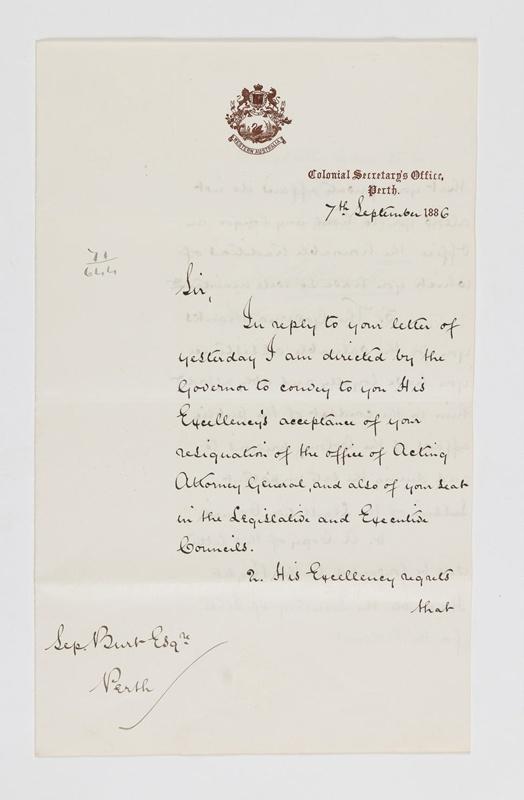 WESTERN AUSTRALIA
Colonial Secretary's Office,
Perth.
7th September 1886
71
644
Sir,
In reply to your letter of
yesterday I am directed by the
Governor to convey to you His
Excellency's acceptance of your
resignation of the office of Acting
Attorney General, and also of your seat
in the Legislative and Executive
Councils.
2. His Excellency regrets
that
Sep. Burt Esqre
Perth